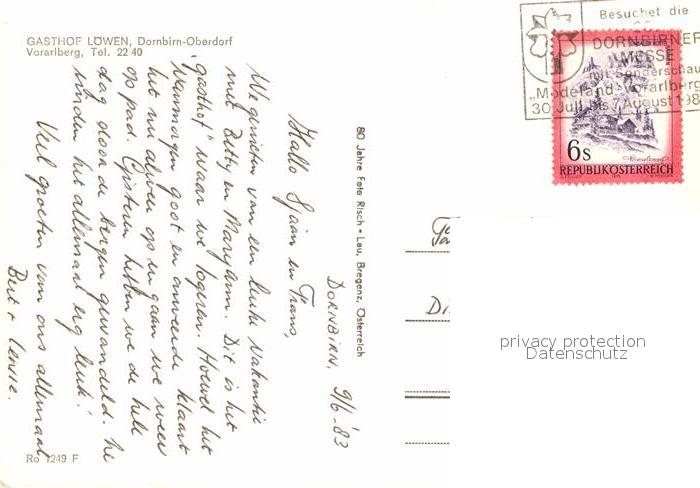 GASTHOF LÖWEN, Dornbirn-Oberdorf
Vorarlberg, Tel. 22 40
Besuchet die
DORNBIRNER
MESSE
mit Sonderschau
„Modeland Vorarlberg
30. Juli bis 7. August 198
6s
REPUBLIK ÖSTERREICH
80 Jahre Foto Risch-Lau, Bregenz, Österreich
DORNBIRN, 9/6-'83
Hallo Sjaan en Frans,
We genieten van een leuke vakantie
met Betty en Maryann. Dit is het
"gasthof" waar we logeren. Hoewel het
vanmorgen goot en onweerde klaart
het nu alweer op en gaan we weer
op pad. Gisteren hebben we de hele
dag door de bergen gewandeld. We
vinden het allemaal erg leuk!
Veel groeten van ons allemaal
Bert +
Di
privacy protection
Datenschutz
Ro 1249 F